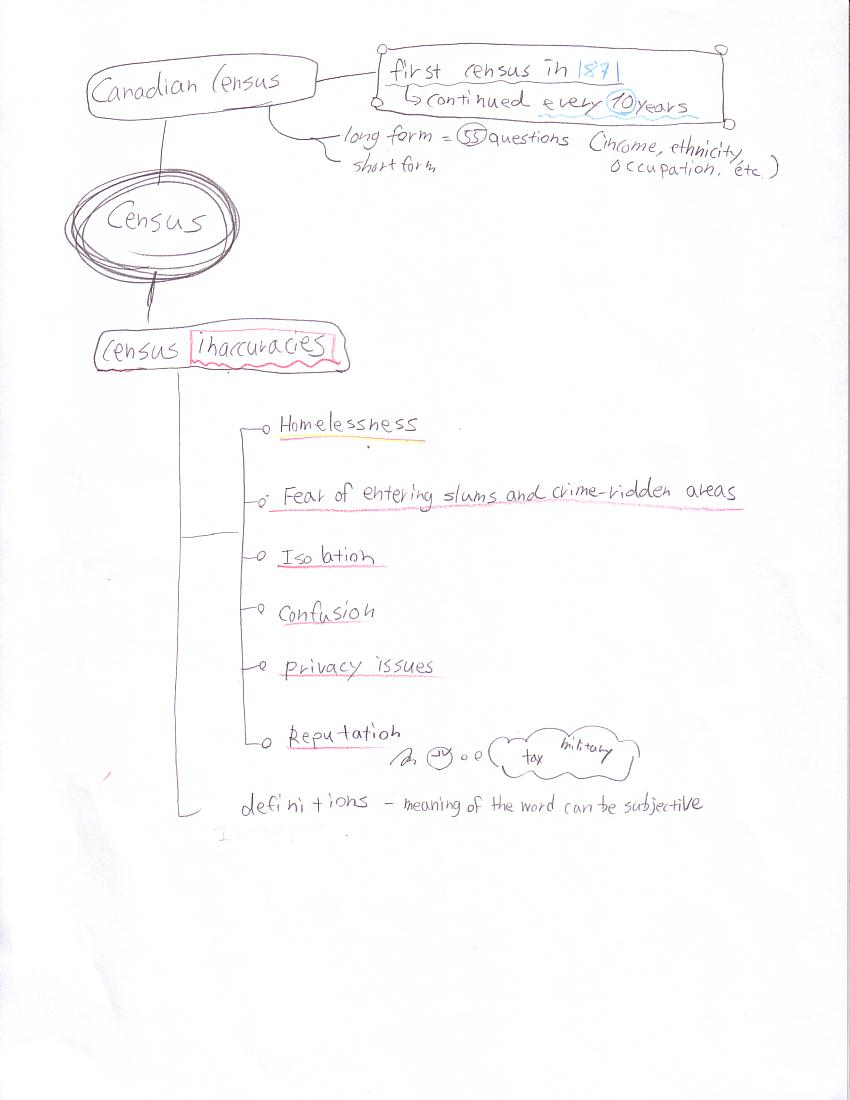 Canadian Census
first census in 1871
↳ continued every 10 years
long form = 55 questions (income, ethnicity,
occupation, etc.)
short form
Census
Census inaccuracies
Homelessness
Fear of entering slums and crime-ridden areas
Isolation
Confusion
privacy issues
Reputation
tax military
definitions - meaning of the word can be subjective